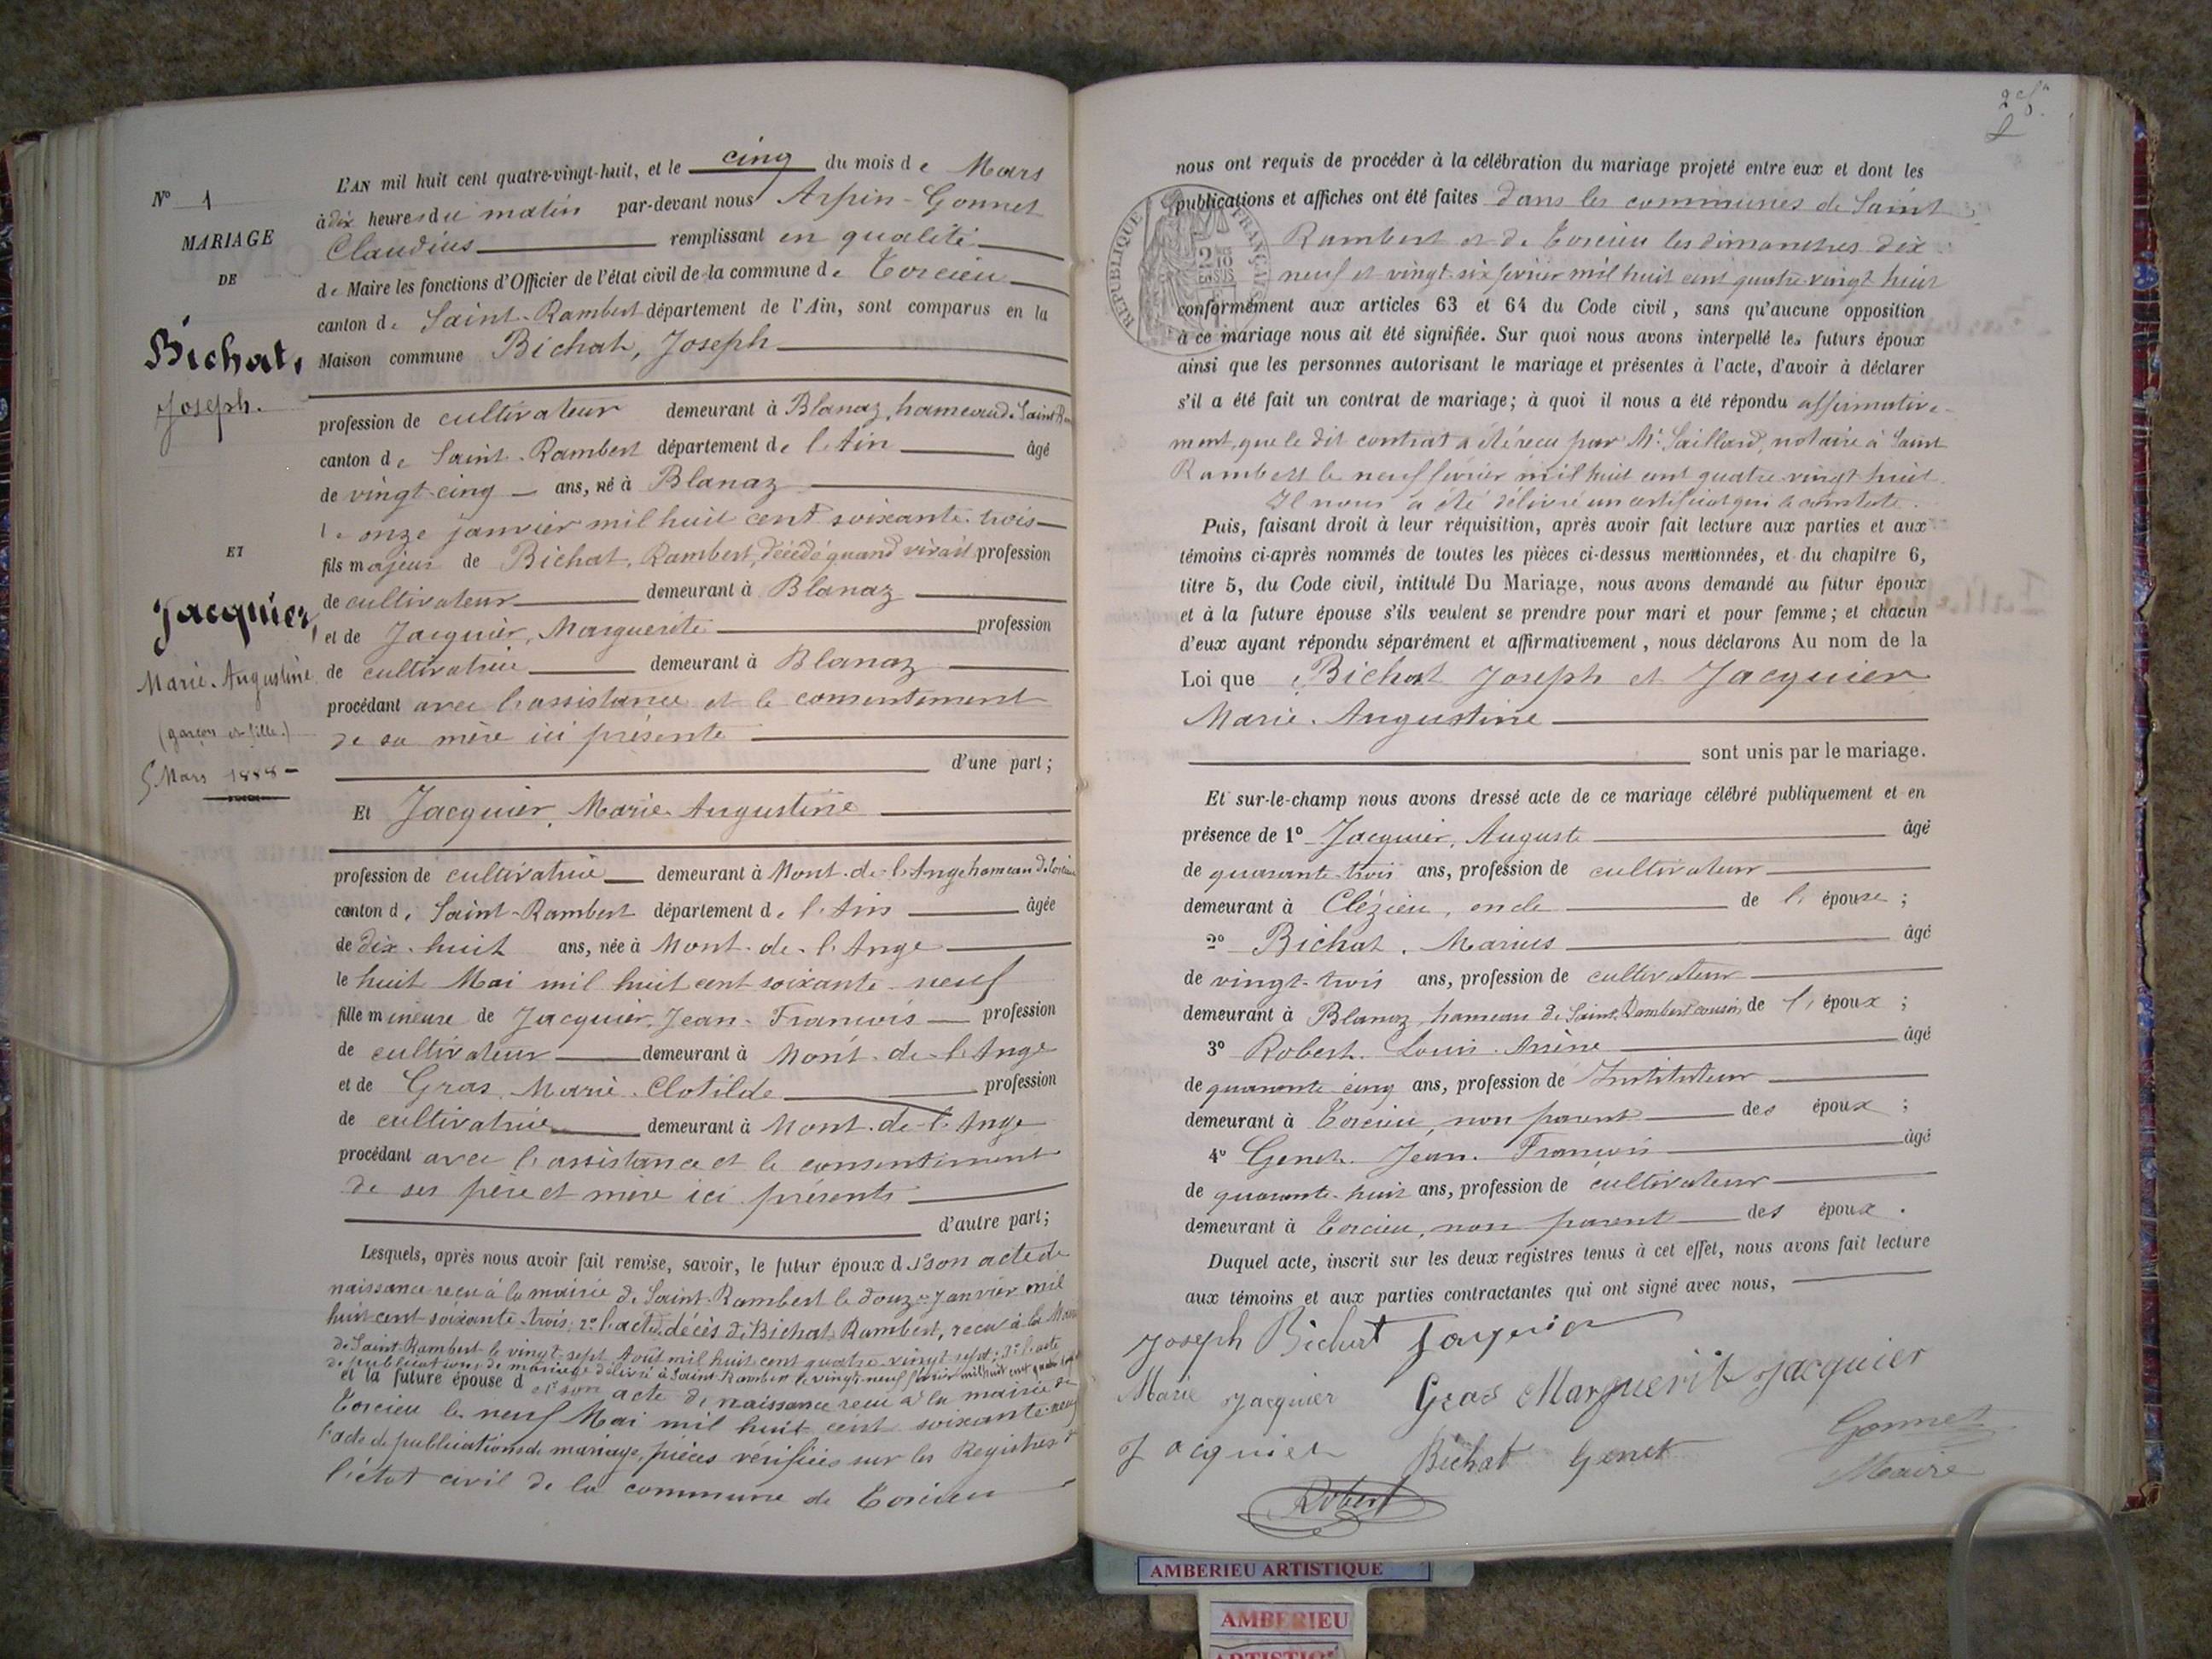 N° 1
MARIAGE
DE
Bichat,
Joseph.
ET
Jacquier,
Marie-Augustine
(garçon et fille.)
5 Mars 1888 -
L'AN mil huit cent quatre-vingt-huit, et le cinq du mois de Mars
à dix heures du matin par-devant nous Arpin-Gonnet
Claudius remplissant en qualité
de Maire les fonctions d'Officier de l'état civil de la commune de Torcieu
canton de Saint-Rambert département de l'Ain, sont comparus en la
Maison commune Bichat, Joseph
profession de cultivateur demeurant à Blanaz, hameau de Saint
canton de Saint-Rambert département de l'Ain âgé
de vingt-cinq ans, né à Blanaz
le onze janvier mil huit cent soixante-trois
fils majeur de Bichat, Rambert, décédé quand vivait profession
de cultivateur demeurant à Blanaz
et de Jacquier, Marguerite profession
de cultivatrice demeurant à Blanaz
procédant avec l'assistance et le consentement
de sa mère ici présente
d'une part;
Et Jacquier, Marie-Augustine
profession de cultivatrice demeurant à Mont-de-l'Ange hameau de Torcieu
canton de Saint-Rambert département de l'Ain âgée
de dix-huit ans, née à Mont-de-l'Ange
le huit Mai mil huit cent soixante-neuf
fille mineure de Jacquier, Jean-François profession
de cultivateur demeurant à Mont-de-l'Ange
et de Gras, Marie-Clotilde profession
de cultivatrice demeurant à Mont-de-l'Ange
procédant avec l'assistance et le consentement
de ses père et mère ici présents
d'autre part;
Lesquels, après nous avoir fait remise, savoir, le futur époux d 1° son acte de
naissance reçu à la mairie de Saint-Rambert le douze Janvier mil
huit cent soixante-trois; 2° l'acte de décès de Bichat Rambert, reçu à la
de Saint-Rambert le vingt-sept Août mil huit cent quatre-vingt sept; 3° l'acte
de publications de mariage délivré à Saint-Rambert le vingt-neuf février mil huit cent quatre
et la future épouse d e 1° son acte de naissance reçu à la mairie de
Torcieu le neuf Mai mil huit cent soixante-neuf
l'acte de publications de mariage, pièces vérifiées sur les Registres de
l'état civil de la commune de Torcieu
2
nous ont requis de procéder à la célébration du mariage projeté entre eux et dont les
publications et affiches ont été faites dans les communes de Saint
Rambert et de Torcieu les dimanches dix
neuf et vingt-six février mil huit cent quatre-vingt huit
conformément aux articles 63 et 64 du Code civil, sans qu'aucune opposition
à ce mariage nous ait été signifiée. Sur quoi nous avons interpellé les futurs époux
ainsi que les personnes autorisant le mariage et présentes à l'acte, d'avoir à déclarer
s'il a été fait un contrat de mariage; à quoi il nous a été répondu affirmative-
ment, que le dit contrat a été reçu par Mr Saillard, notaire à Saint
Rambert le neuf février mil huit cent quatre-vingt huit.
Il nous a été délivré un certificat qui le constate.
Puis, faisant droit à leur réquisition, après avoir fait lecture aux parties et aux
témoins ci-après nommés de toutes les pièces ci-dessus mentionnées, et du chapitre 6,
titre 5, du Code civil, intitulé Du Mariage, nous avons demandé au futur époux
et à la future épouse s'ils veulent se prendre pour mari et pour femme; et chacun
d'eux ayant répondu séparément et affirmativement, nous déclarons Au nom de la
Loi que Bichat Joseph et Jacquier
Marie-Augustine
sont unis par le mariage.
Et sur-le-champ nous avons dressé acte de ce mariage célébré publiquement et en
présence de 1° Jacquier, Auguste âgé
de quarante-trois ans, profession de cultivateur
demeurant à Clézieu, oncle de l'épouse;
2° Bichat, Marius âgé
de vingt-trois ans, profession de cultivateur
demeurant à Blanaz, hameau de Saint-Rambert cousin de l'époux;
3° Robert, Louis-Arsène âgé
de quarante-cinq ans, profession de Instituteur
demeurant à Torcieu, non parent des époux;
4° Genet, Jean-François âgé
de quarante-huit ans, profession de cultivateur
demeurant à Torcieu, non parent des époux.
Duquel acte, inscrit sur les deux registres tenus à cet effet, nous avons fait lecture
aux témoins et aux parties contractantes qui ont signé avec nous,
Joseph Bichat Jacquier
Marie Jacquier Gras Marguerite Jacquier
Jacquier Bichat Genet Gonnet
Maire
Robert
RÉPUBLIQUE FRANÇAISE
AMBERIEU ARTISTIQUE
AMBERIEU
ARTISTIQUE